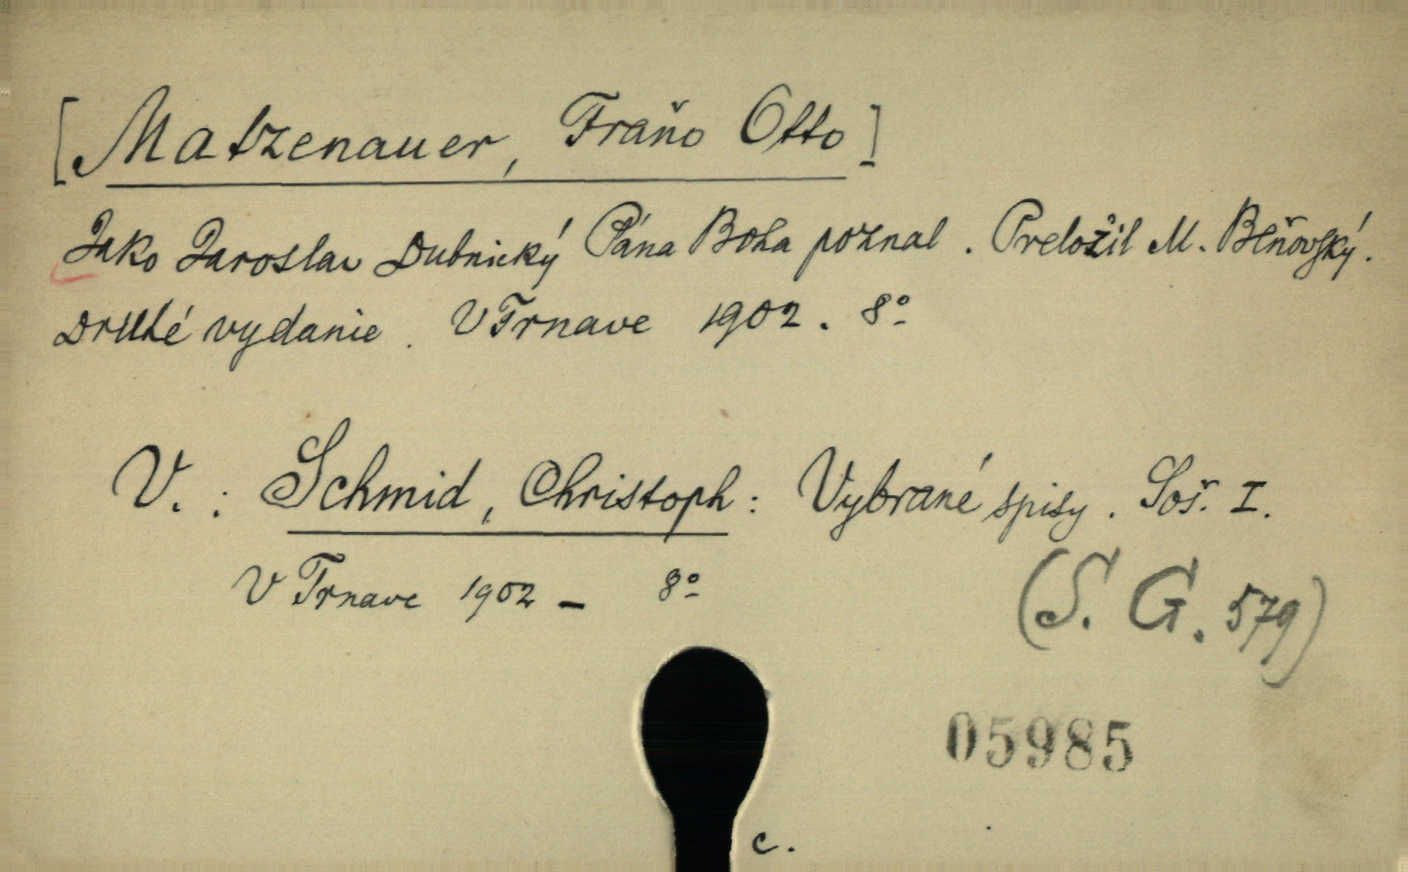 [Matzenauer, Fraňo Otto]
Jako Jaroslav Dubnický Pána Boha poznal. Preložil M. Bêňovský.
Druhé vydanie. V Trnave 1902. 8°
V.: Schmid, Christoph: Vybrané spisy. Soš. I.
V Trnave 1902 - 8°
(S. G. 579)
05985
c.